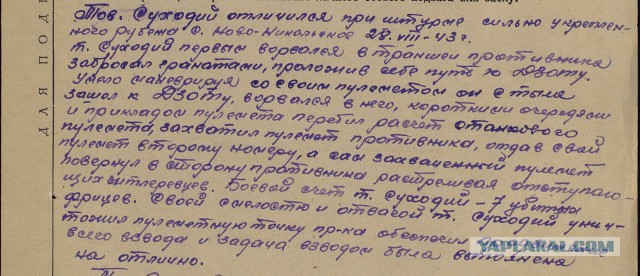 Тов. Суходий отличился при штурме сильно укреплен-
ного рубежа с. Ново-Никольское 28-VIII-43 г.
т. Суходий первым ворвался в траншеи противника
забросал гранатами, проложив себе путь к Дзоту.
Умело маневрируя со своим пулеметом он с тыла
зашол к Дзоту, ворвался в него, короткими очередями
и прикладом пулемета перебил расчет станкового
пулемета, захватил пулемет противника, отдав свой
пулемет второму номеру, а сам захваченный пулемет
повернул в сторону противника растреливая отступаю-
щих гитлеревцев. Боевой счет т. Суходий - 7 убитых
фрицев. Своей смелостью и отвагой т. Суходий унич-
тожил пулеметную точку пр-ка обеспечил
всего взвода и задача взводом была выполнена
на отлично.
ДЛЯ ПОД
YAPLAKAL.COM